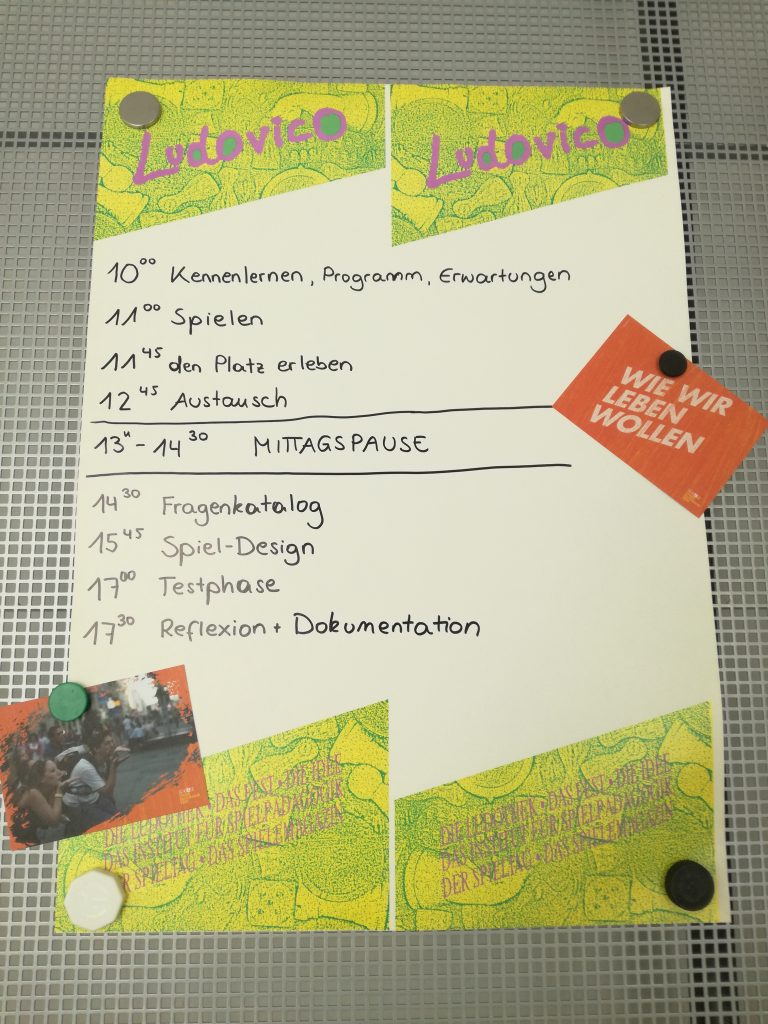 Ludovico
Ludovico
10⁰⁰ Kennenlernen, Programm, Erwartungen
11⁰⁰ Spielen
11⁴⁵ den Platz erleben
12⁴⁵ Austausch
13 - 14³⁰ MITTAGSPAUSE
WIE WIR
LEBEN
WOLLEN
14³⁰ Fragenkatalog
15⁴⁵ Spiel-Design
17⁰⁰ Testphase
17³⁰ Reflexion + Dokumentation
DIE LUDOTHEK • DAS FEST • DIE IDEE
DAS INSTITUT FÜR SPIELPÄDAGOGIK
DER SPIELTAG • DAS SPIELEMAGAZIN
DIE LUDOTHEK • DAS FEST • DIE IDEE
DAS INSTITUT FÜR SPIELPÄDAGOGIK
DER SPIELTAG • DAS SPIELEMAGAZIN